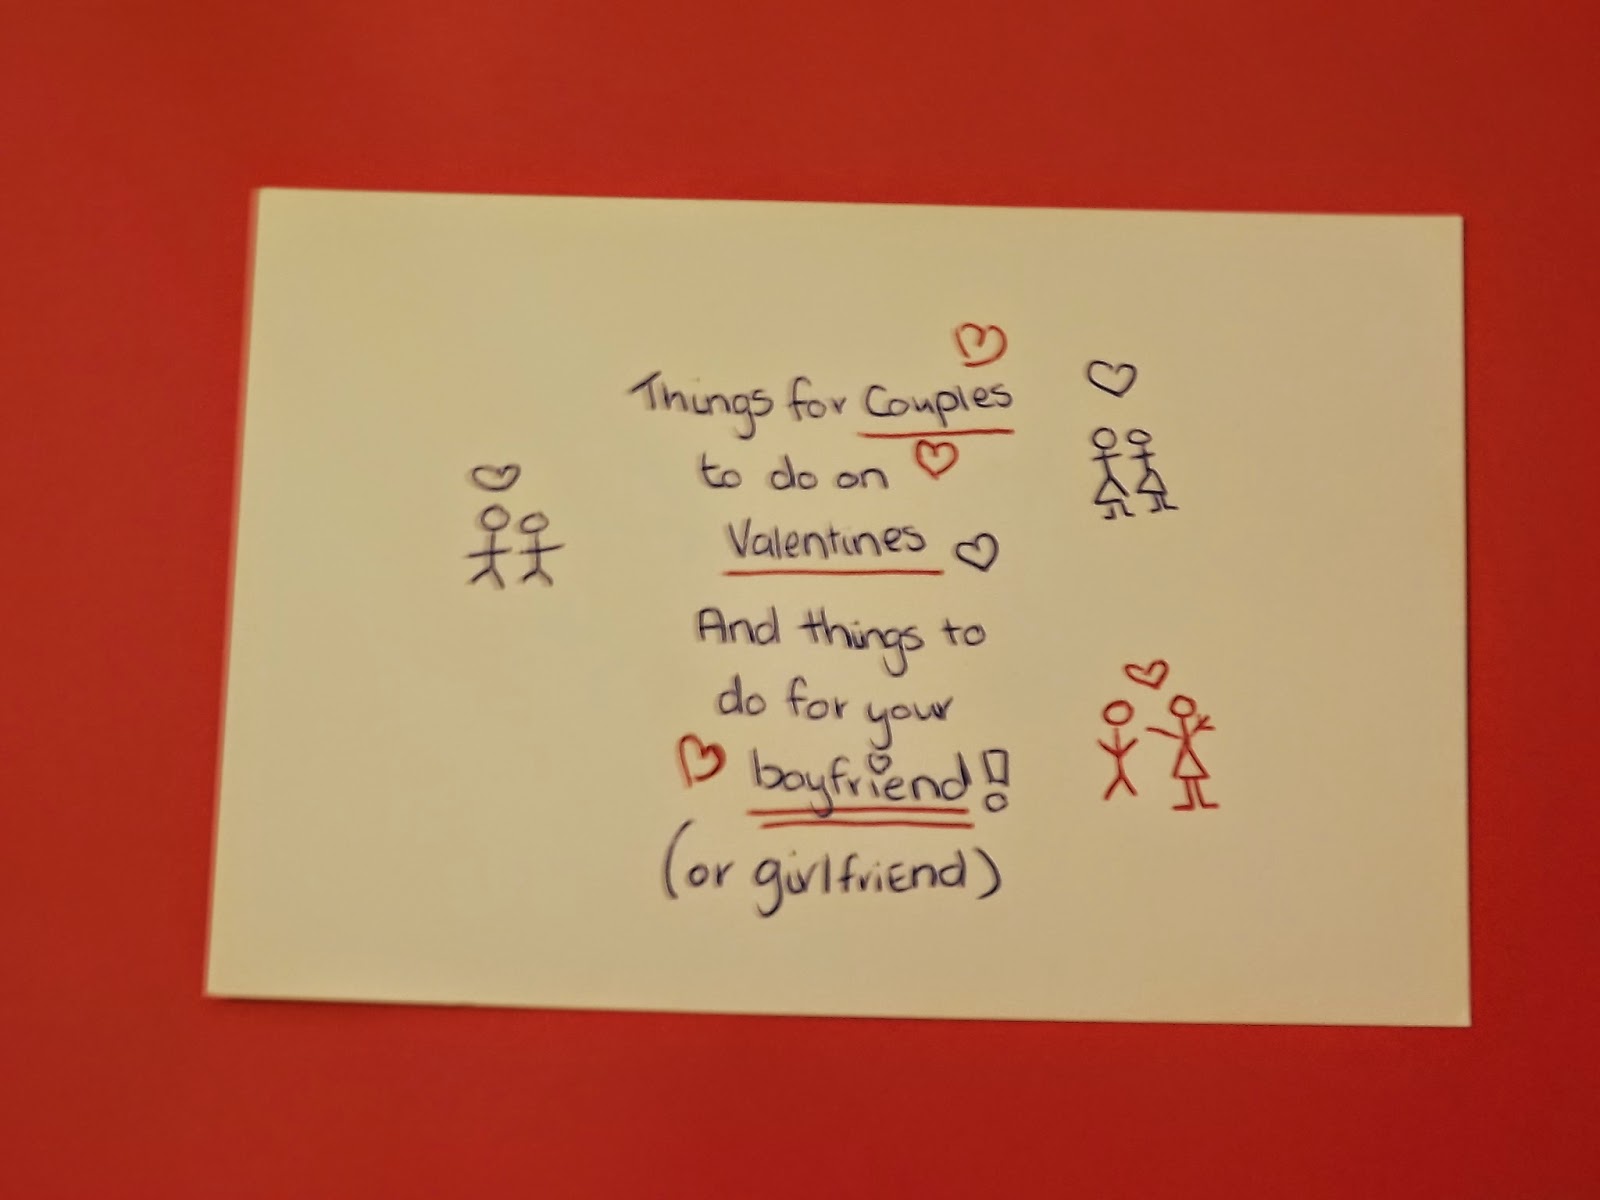 Things for Couples
to do on
Valentines
And things to
do for your
boyfriend!
(or girlfriend)